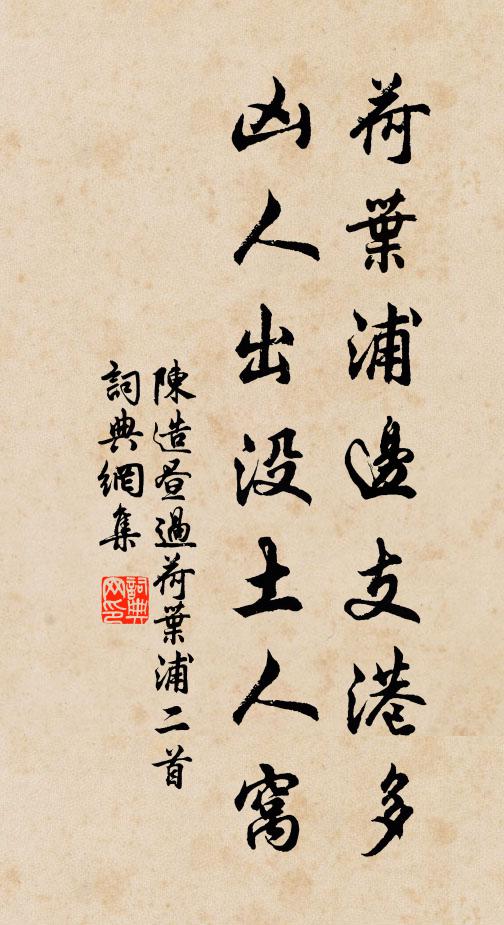 荷葉浦邊支港多
凶人出没土人窩
陳造昼過荷葉浦二首
詞典網集
詞典網印